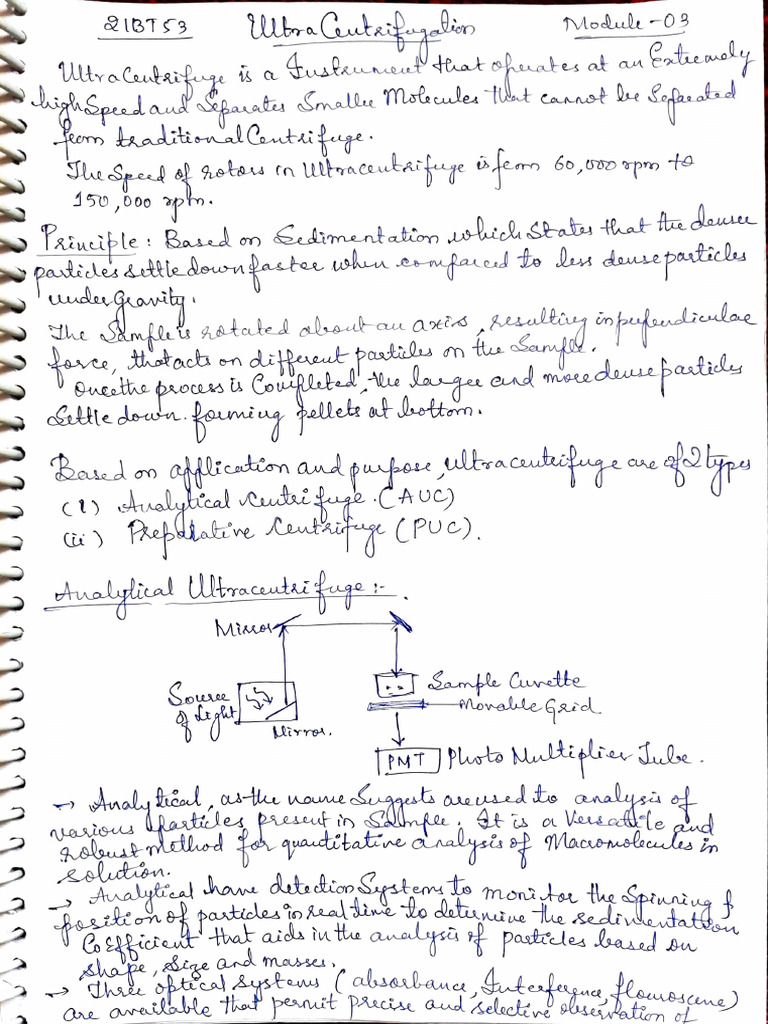 21BT53 Ultra Centrifugation Module-03
Ultra Centrifuge is a Instrument that operates at an Extremely
high Speed and Separates Smaller Molecules that cannot be Separated
from traditional Centrifuge.
The Speed of rotors in Ultracentrifuge is from 60,000 rpm to
150,000 rpm.
Principle: Based on Sedimentation, which States that the denser
particles settle down faster when compared to less dense particles
under Gravity.
The Sample is rotated about an axis, resulting in perpendicular
force, that acts on different particles on the Sample.
Once the process is Completed, the larger and more dense particles
Settle down forming pellets at bottom.
Based on application and purpose, ultracentrifuge are of 2 types
(i) Analytical Centrifuge (AUC)
(ii) Preparative Centrifuge (PUC).
Analytical Ultracentrifuge :-
Mirror
Source
of Light
Mirror.
Sample Cuvette
Movable Grid.
PMT Photo Multiplier Tube.
→ Analytical, as the name Suggests are used to analysis of
various particles present in Sample. It is a Versatile and
robust method for quantitative analysis of Macromolecules in
solution.
→ Analytical have detection Systems to monitor the Spinning &
position of particles in real time to determine the sedimentation
Coefficient that aids in the analysis of particles based on
shape, size and masses.
→ Three optical systems (absorbance, Interference, flouroscene)
are available that permit precise and selective observation of